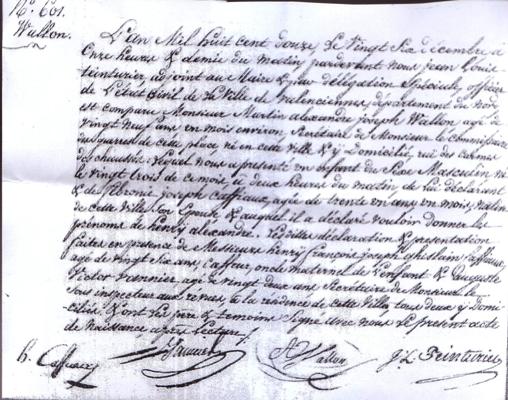 No. 601.
Wallon.
L'an Mil huit cent douze, Le Vingt Six décembre à
Onze heures & demie du matin pardevant nous Jean Louis
Teinturier adjoint au Maire & par délégation Spéciale, officier
de L'état Civil de la Ville de Valenciennes, département du Nord
est comparu Monsieur Martin alexandre Joseph Wallon agé de
Vingt neuf ans un mois environ Secrétaire de Monsieur le Commissaire
des guerres de cette place, né en cette Ville & y Domicilié, rue des Carmes
déchaussés. Lequel nous a présenté un enfant du Sexe Masculin né
le vingt trois de ce mois à deux heures du matin, de lui déclarant
& de joseph Caffiaux, agée de trente un ans un mois, native
de cette Ville Son Epouse & auquel il a déclaré vouloir donner les
prénoms de henry alexandre. Lesdittes déclaration & présentation
faites en présence de Messieurs henry françois joseph ghislain Caffiaux
agé de vingt Six ans, oncle maternel de L'enfant & auguste
Victor Vannier agé de vingt deux ans Secrétaire de Monsieur le
Sous inspecteur aux revues à la résidence de cette Ville, tous deux y Domi
ciliés, & ont Les père & témoins Signé avec nous Le présent acte
de Naissance après Lecture.
h. Caffiaux Vannier A Wallon J. L. Teinturier